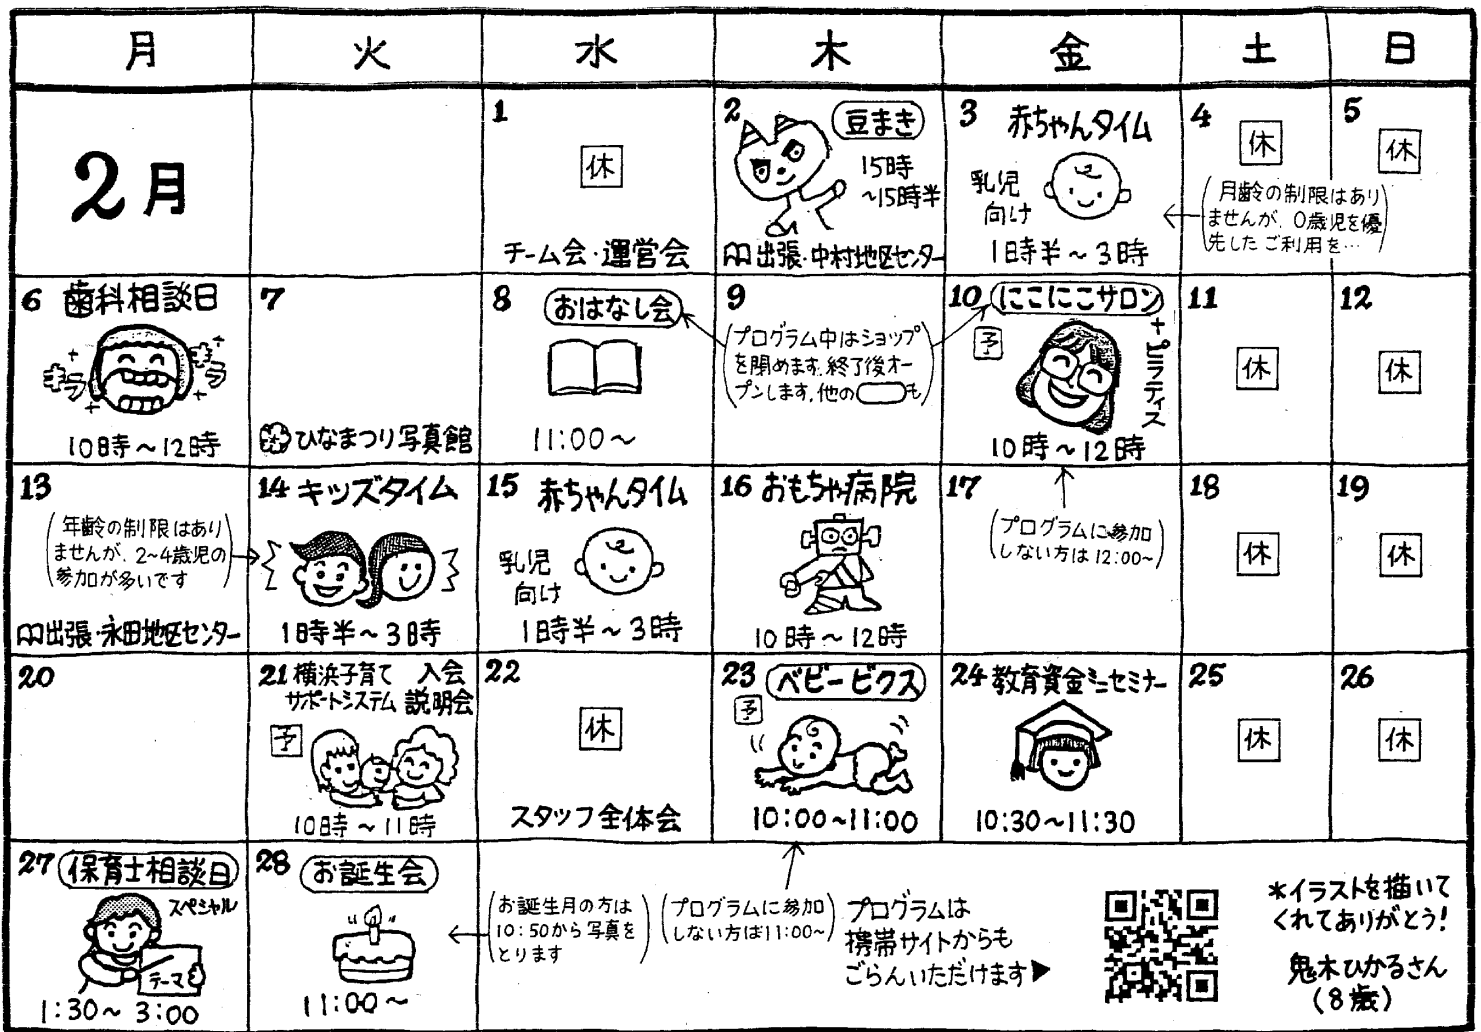 月 火 水 木 金 土 日
2月
1
休
チーム会・運営会
2
豆まき
15時
～15時半
出張・中村地区センター
3
赤ちゃんタイム
乳児
向け
1時半～3時
4
休
5
休
月齢の制限はあり
ませんが、0歳児を優
先したご利用を…
6
歯科相談日
キラ
キラ
10時～12時
7
ひなまつり写真館
8
おはなし会
11:00～
9
プログラム中はショップ
を閉めます。終了後オー
プンします。他の も
10
にこにこサロン
+ピラティス
予
10時～12時
11
休
12
休
13
年齢の制限はあり
ませんが、2～4歳児の
参加が多いです
出張・永田地区センター
14
キッズタイム
1時半～3時
15
赤ちゃんタイム
乳児
向け
1時半～3時
16
おもちゃ病院
10時～12時
17
プログラムに参加
しない方は12:00～
18
休
19
休
20
21
横浜子育て
サポートシステム
入会
説明会
予
10時～11時
22
休
スタッフ全体会
23
ベビービクス
予
10:00～11:00
24
教育資金ミニセミナー
10:30～11:30
25
休
26
休
27
保育士相談日
スペシャル
テーマ
1:30～3:00
28
お誕生会
11:00～
お誕生月の方は
10:50から写真を
とります
プログラムに参加
しない方は11:00～
プログラムは
携帯サイトからも
ごらんいただけます▶
＊イラストを描いて
くれてありがとう!
鬼木ひかるさん
(8歳)